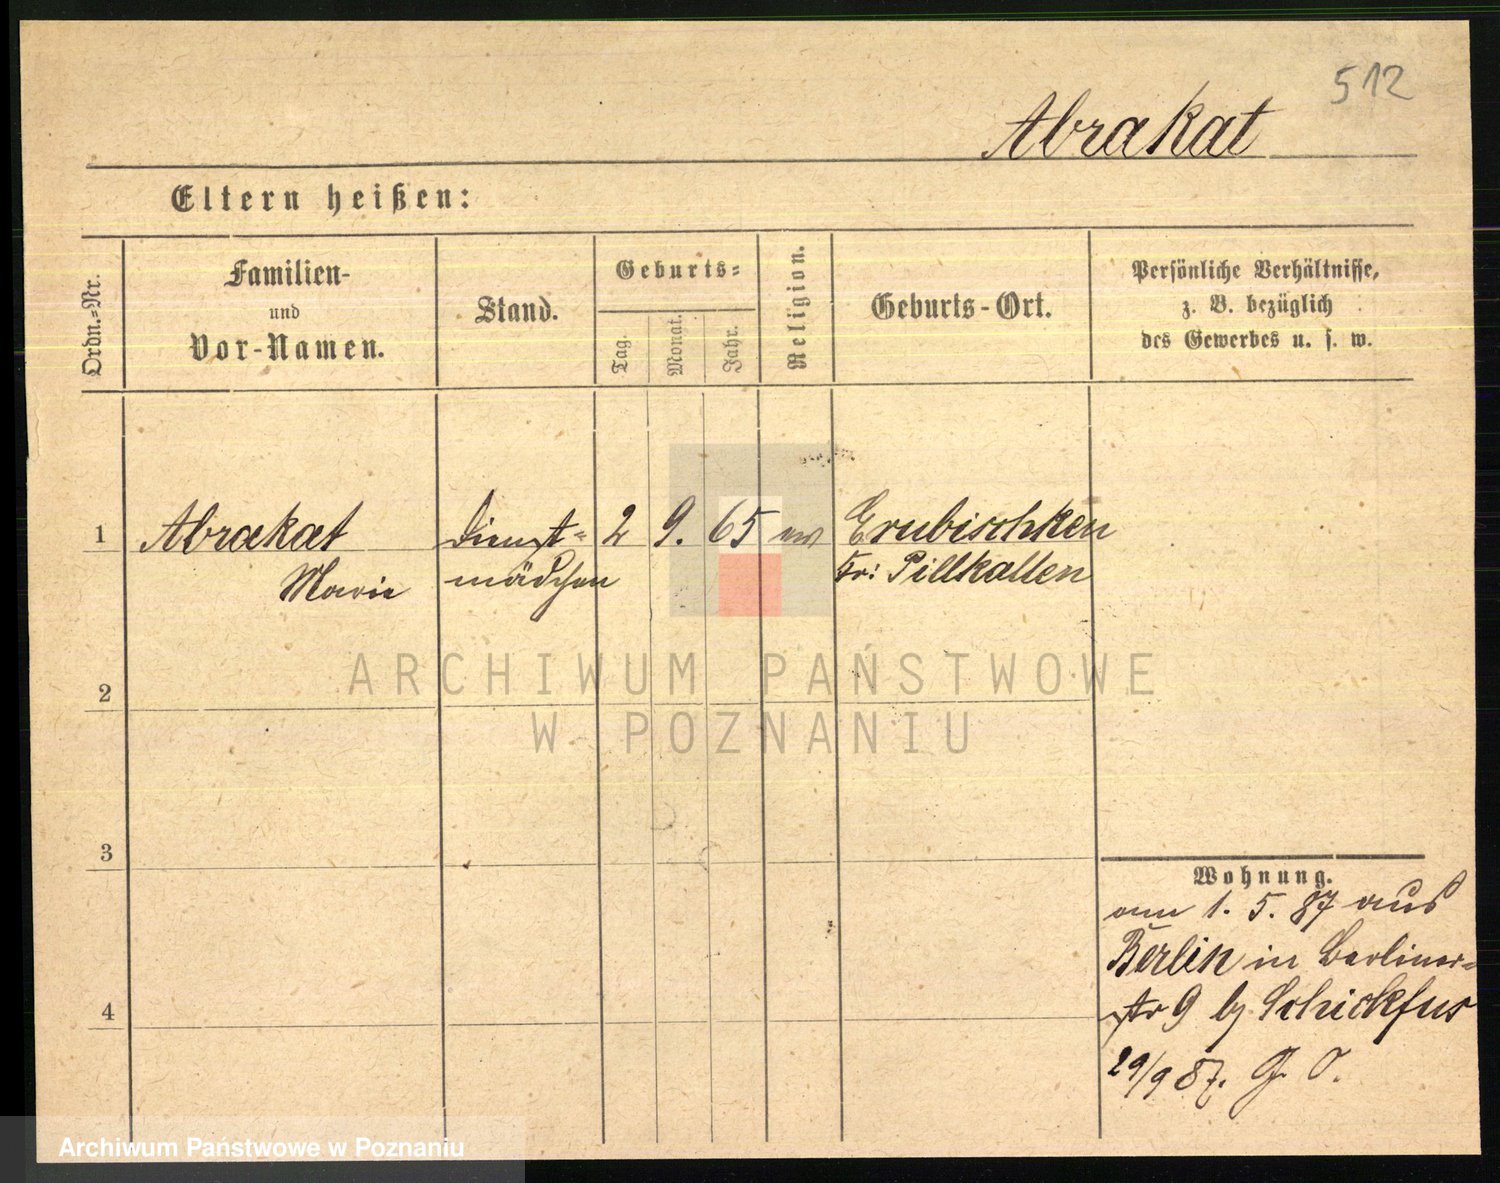 512
Abrakat
Eltern heißen:
Ordn.=Nr.
Familien-
und
Vor-Namen.
Stand.
Geburts=
Tag.
Monat.
Jahr.
Religion.
Geburts-Ort.
Persönliche Verhältnisse,
z. B. bezüglich
des Gewerbes u. s. w.
1 Abrakat Dienst= 2 9. 65 ev Grubischken
Marie mädchen Kr: Pillkallen
2
3
4
Wohnung.
am 1. 5. 87 aus
Berlin in Berliner=
str 9 by Schickfus
29/9 87.
ARCHIWUM PAŃSTWOWE
W POZNANIU
Archiwum Państwowe w Poznaniu